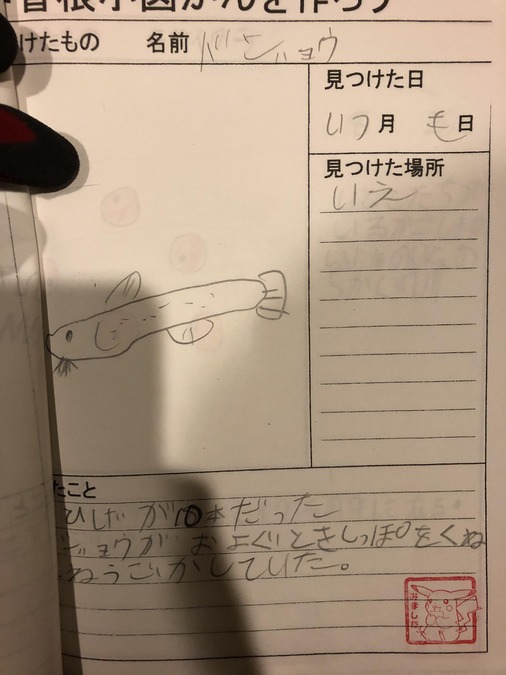 曽根小図かんを作ろう
けたもの　名前　ドジョウ
見つけた日
いつ月　も日
見つけた場所
いえ
たこと
ひげが10本だった
ジョウがおよぐときしっぽをくね
ねうごかしていた。
みました